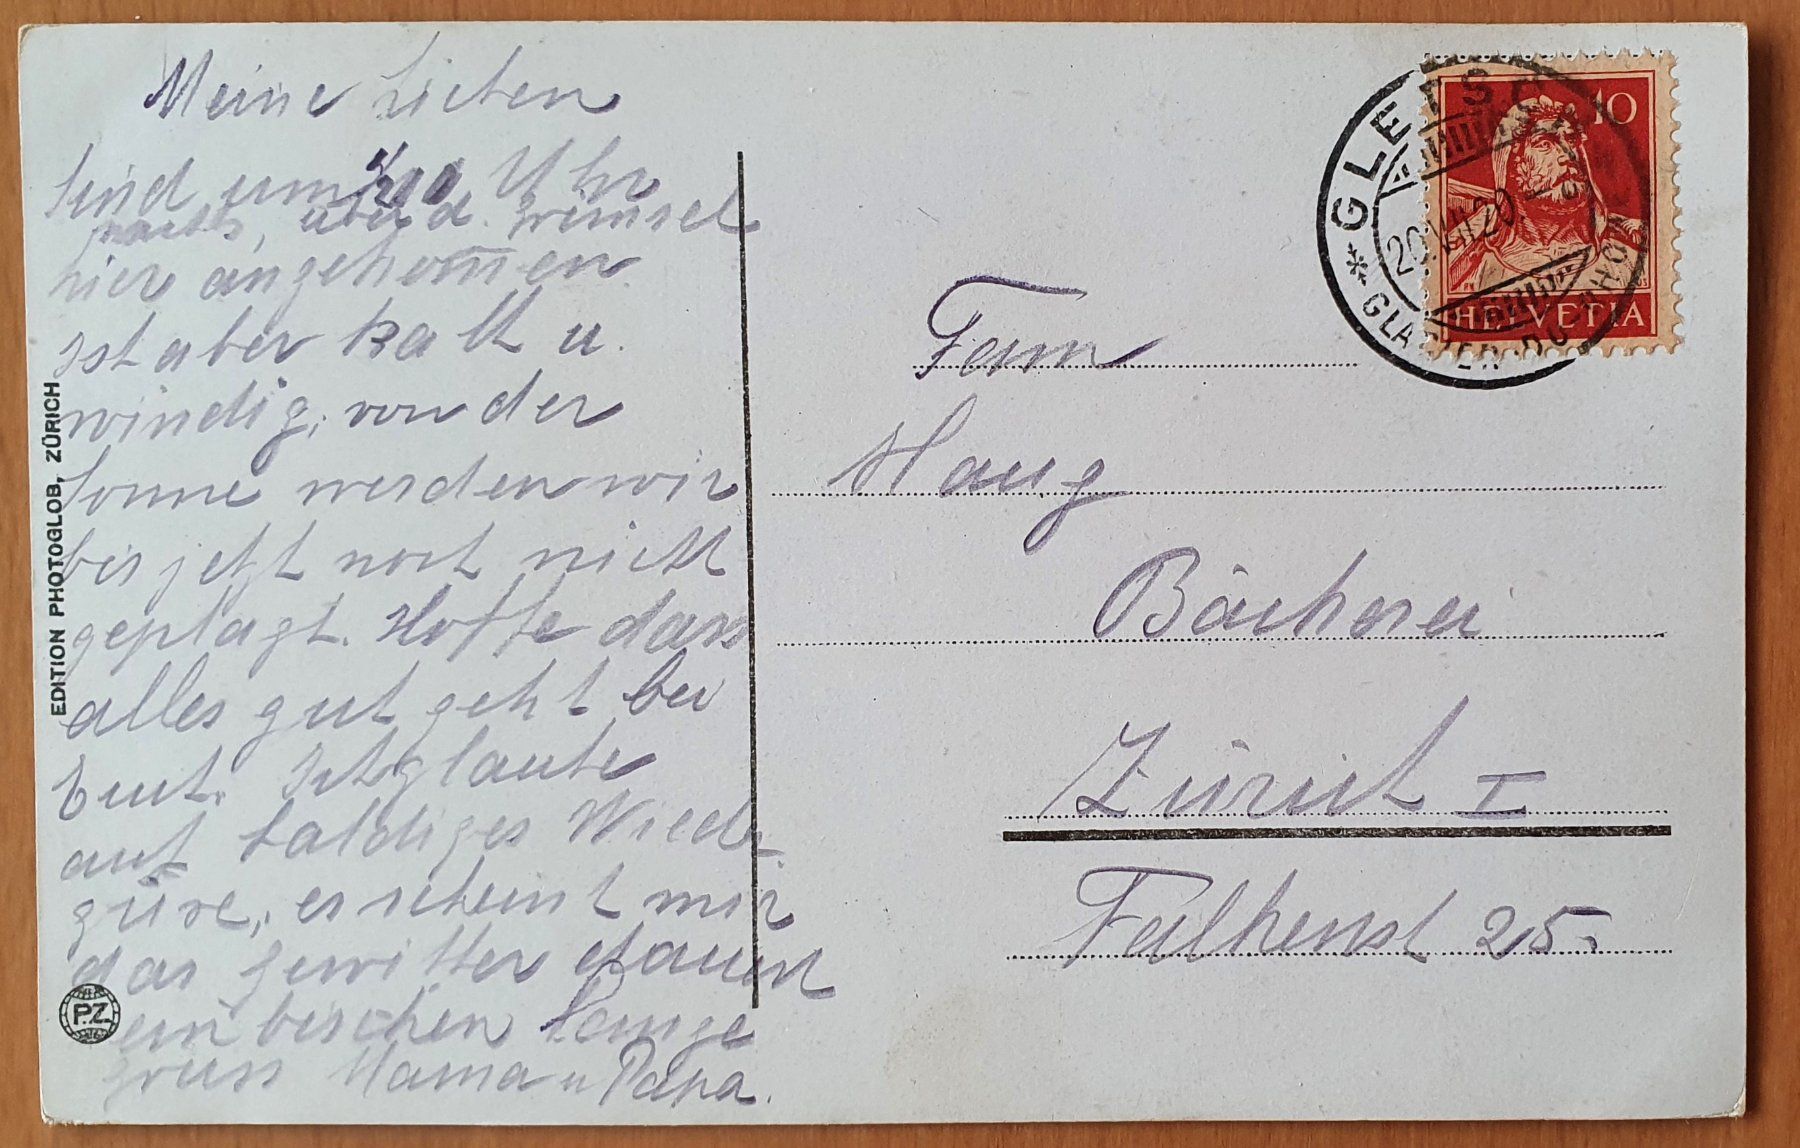 Meine Lieben
Sind um 1/2 10 Uhr
nachts, über d. Grimsel
hier angekommen.
Ist aber kalt u.
windig, von der
Sonne werden wir
bis jetzt noch nicht
geplagt. Hoffe dass
alles gut geht bei
Euch. Ich glaube
auf baldiges Wied-
, es scheint mir
das Gewitter dauert
ein bischen lange
Gruss Mama u Papa.
EDITION PHOTOGLOB, ZÜRICH
P.Z.
GLETSCH
20.VII.20
* GLACIER DU RHONE
10
HELVETIA
Fam
Haug
Bäckerei
Zürich I
Falkenst 25.